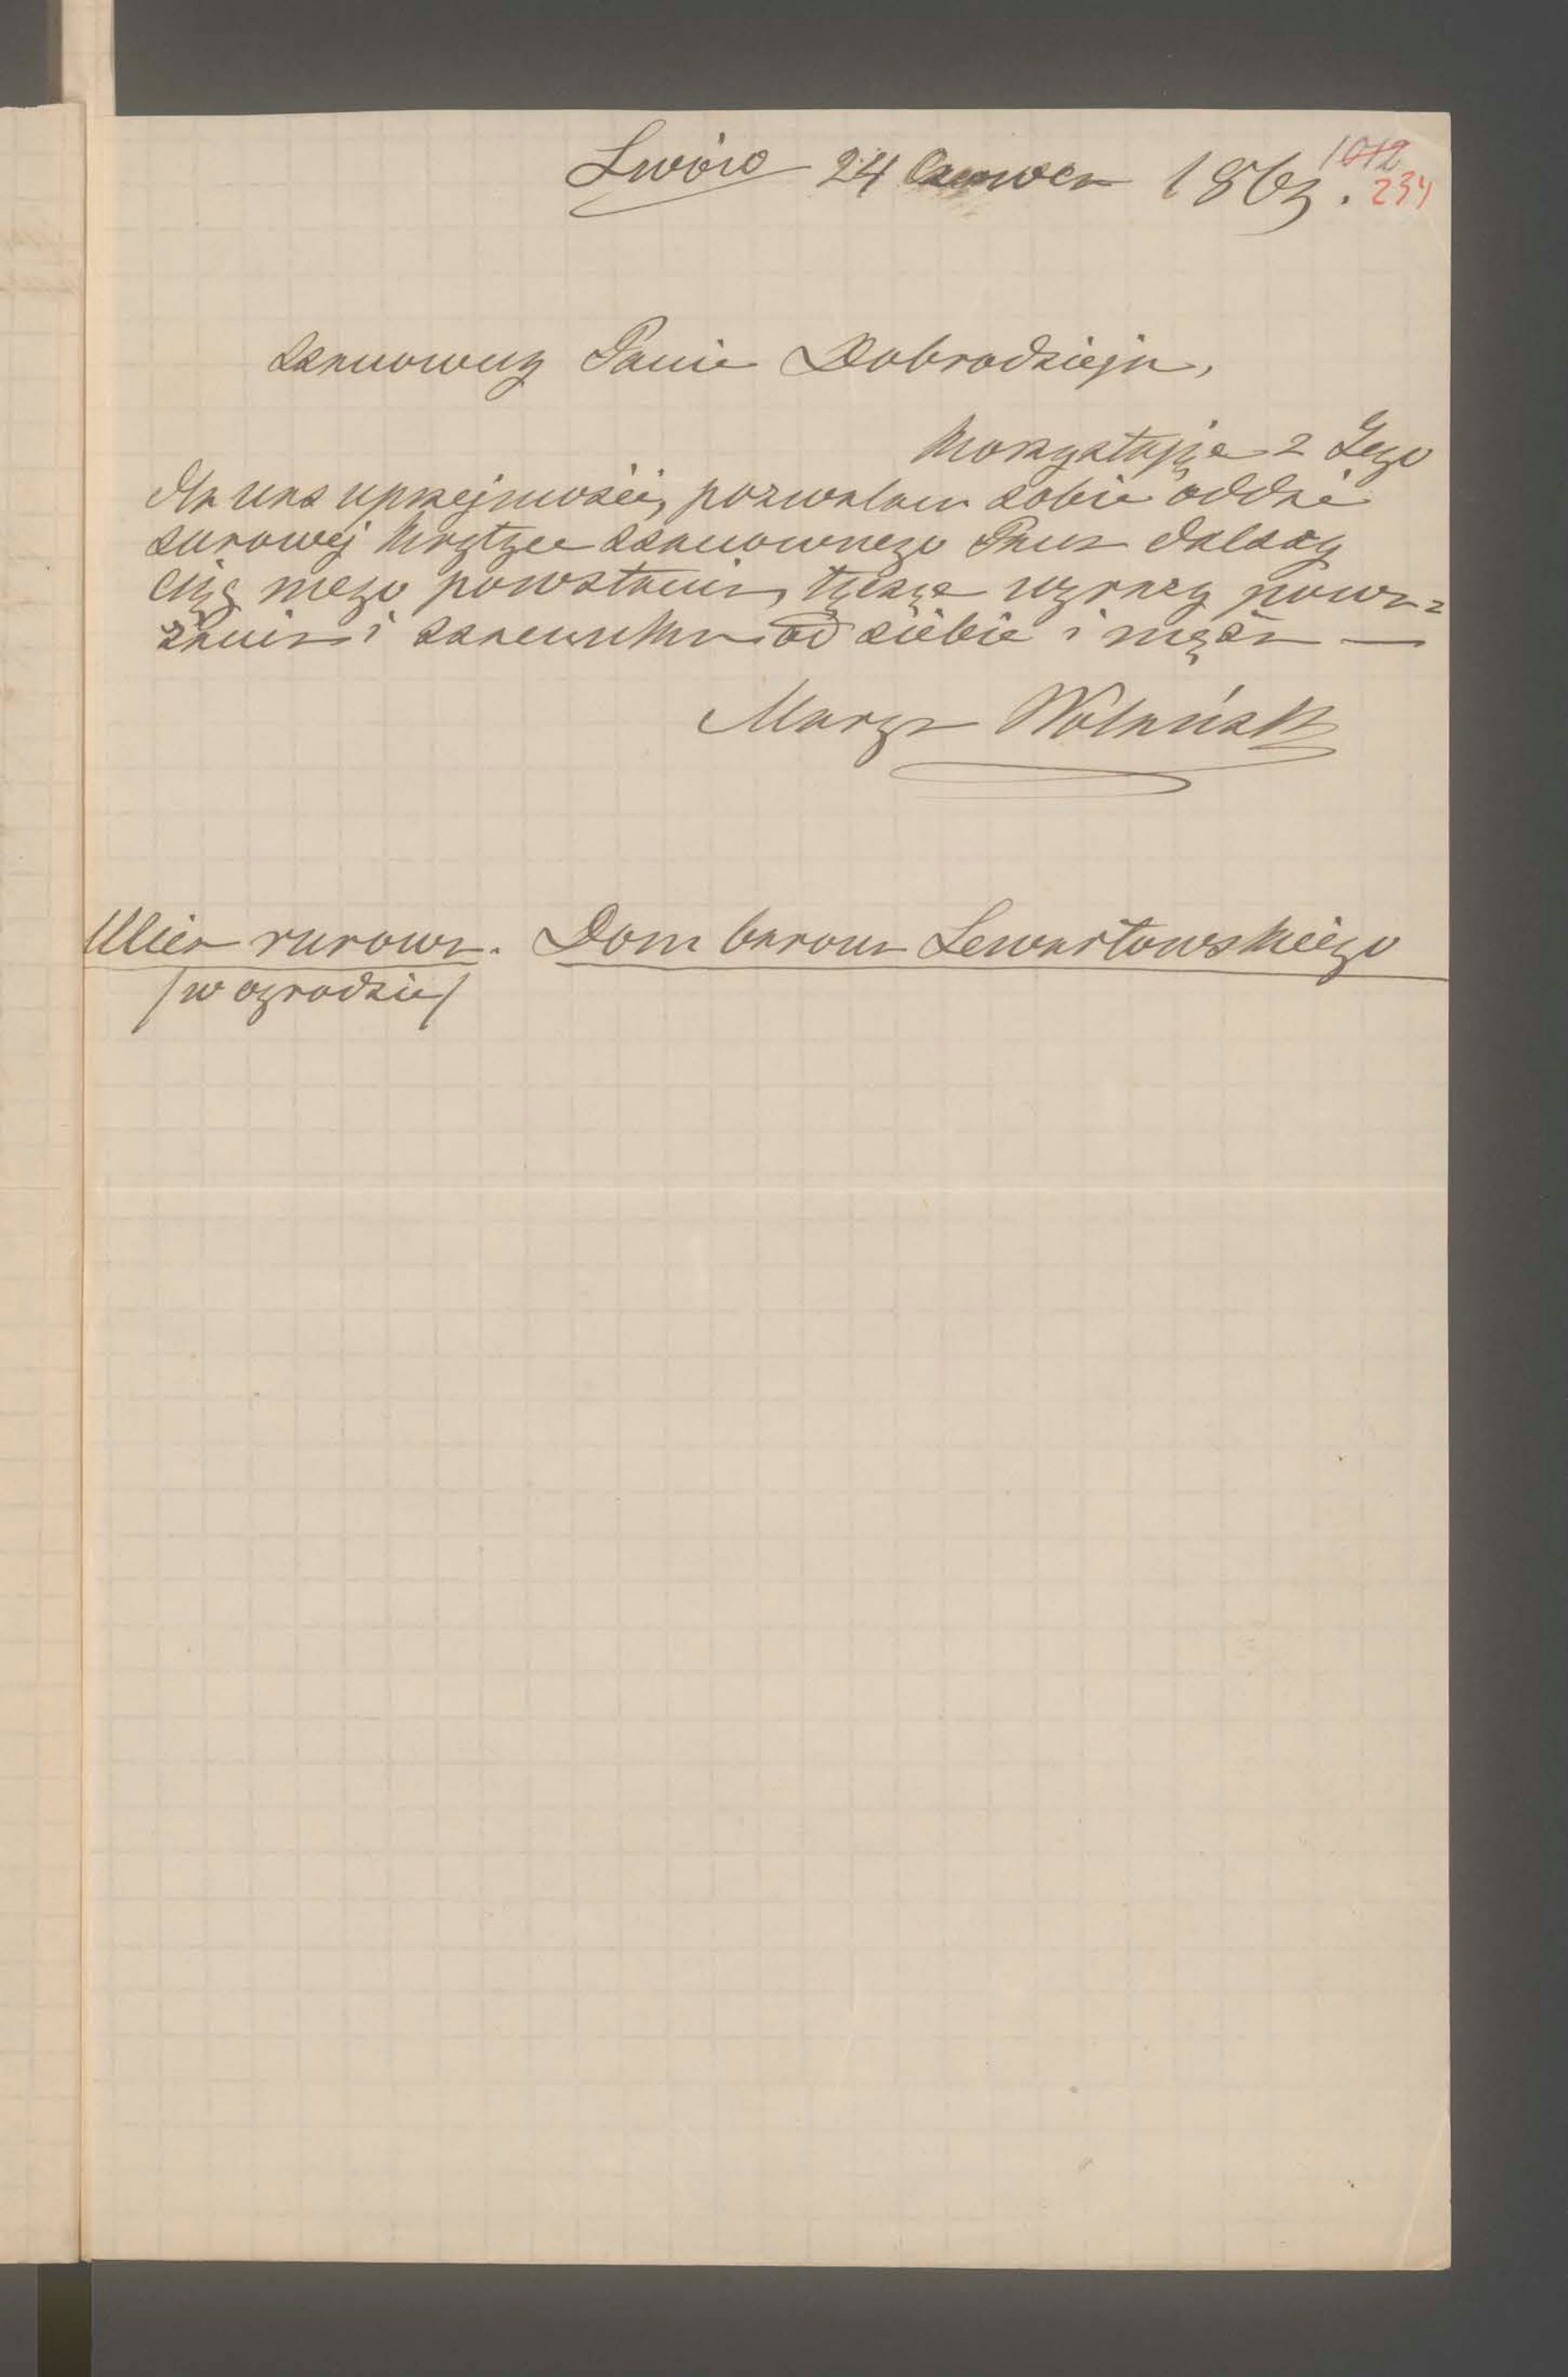 Lwów 24 Czerwca 1863.
1012
234
Szanowny Panie Dobrodzieju,
Korzystając z Jego
dla nas uprzejmości, pozwalam sobie oddać
surowej krytyce Szanownego Pana dalszy
ciąg mego powstania, łącząc wyrazy powa=
żania i szacunku od siebie i męża —
Marya Wolańska
Ulica rurowa. Dom barona Lewartowskiego
/w ogrodzie/